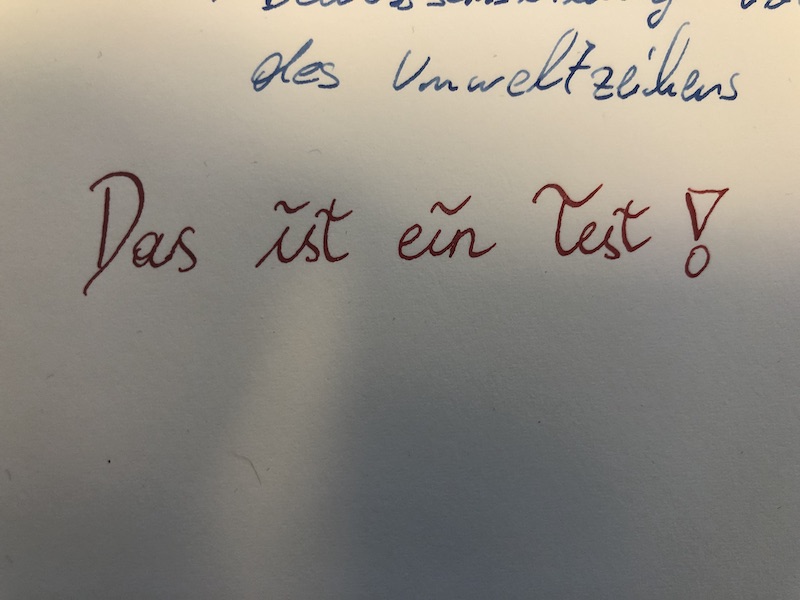 des Umweltzeihens
Das ist ein Test!